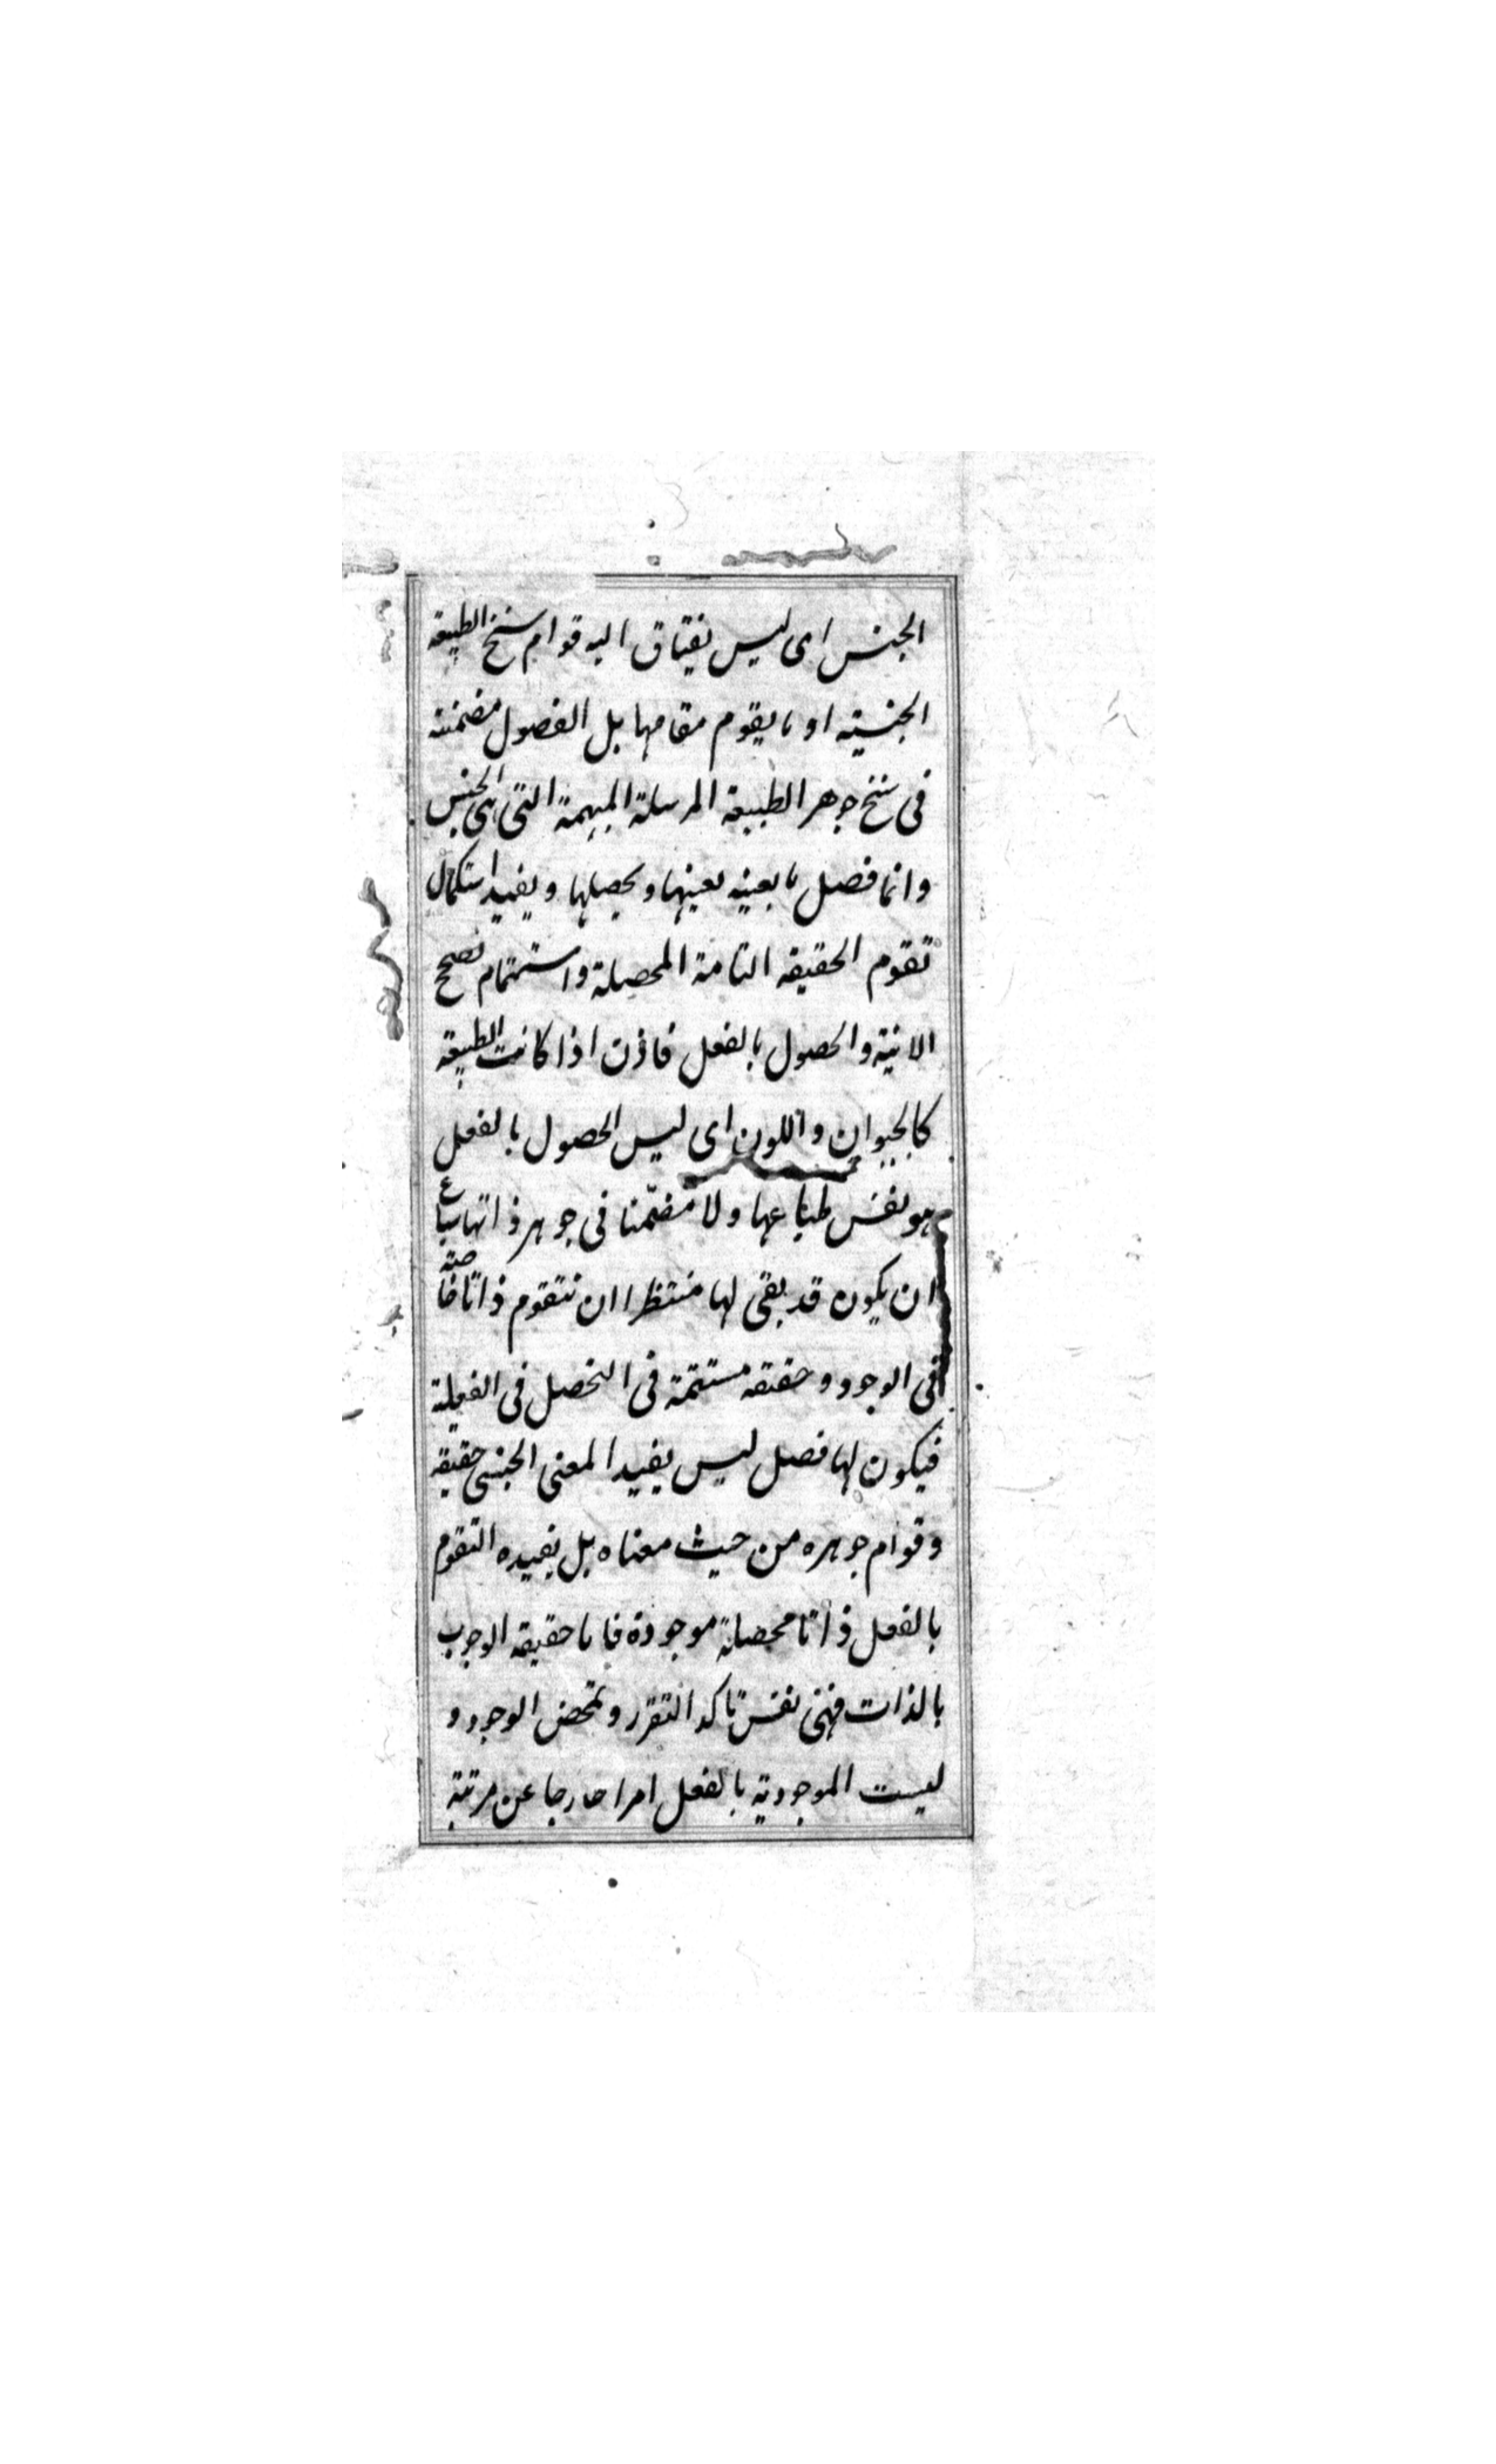 الجنس ای ليس يفتاق اليه قوام سنخ الطبيعة
الجنسية او ما يقوم مقامها بل الفصول مضمنة
فی سنخ جوهر الطبيعة المرسلة المبهمة التی هی الجنس
وانما فصل ما بعينه يعينها ويحصلها ويفيد استكمال
تقوم الحقيقة التامة المحصلة واستتمام تصحح
الانية والحصول بالفعل فاذن اذا كانت الطبيعة
كالحيوان واللون ای ليس الحصول بالفعل
هو نفس طباعها ولا مضمنا فی جوهر ذاتها ساع
ان يكون قد بقی لها منتظرا ان تتقوم ذاتا خاصة
فی الوجود وحقيقة مستتمة فی التحصل فی الفعلية
فيكون لها فصل ليس يفيد المعنی الجنسی حقيقة
وقوام جوهره من حيث معناه بل يفيده التقوم
بالفعل ذاتا محصلة موجودة فاما حقيقة الوجوب
بالذات فهی نفس تاكد التقرر وتمحض الوجود و
ليست الموجودية بالفعل امرا خارجا عن مرتبة